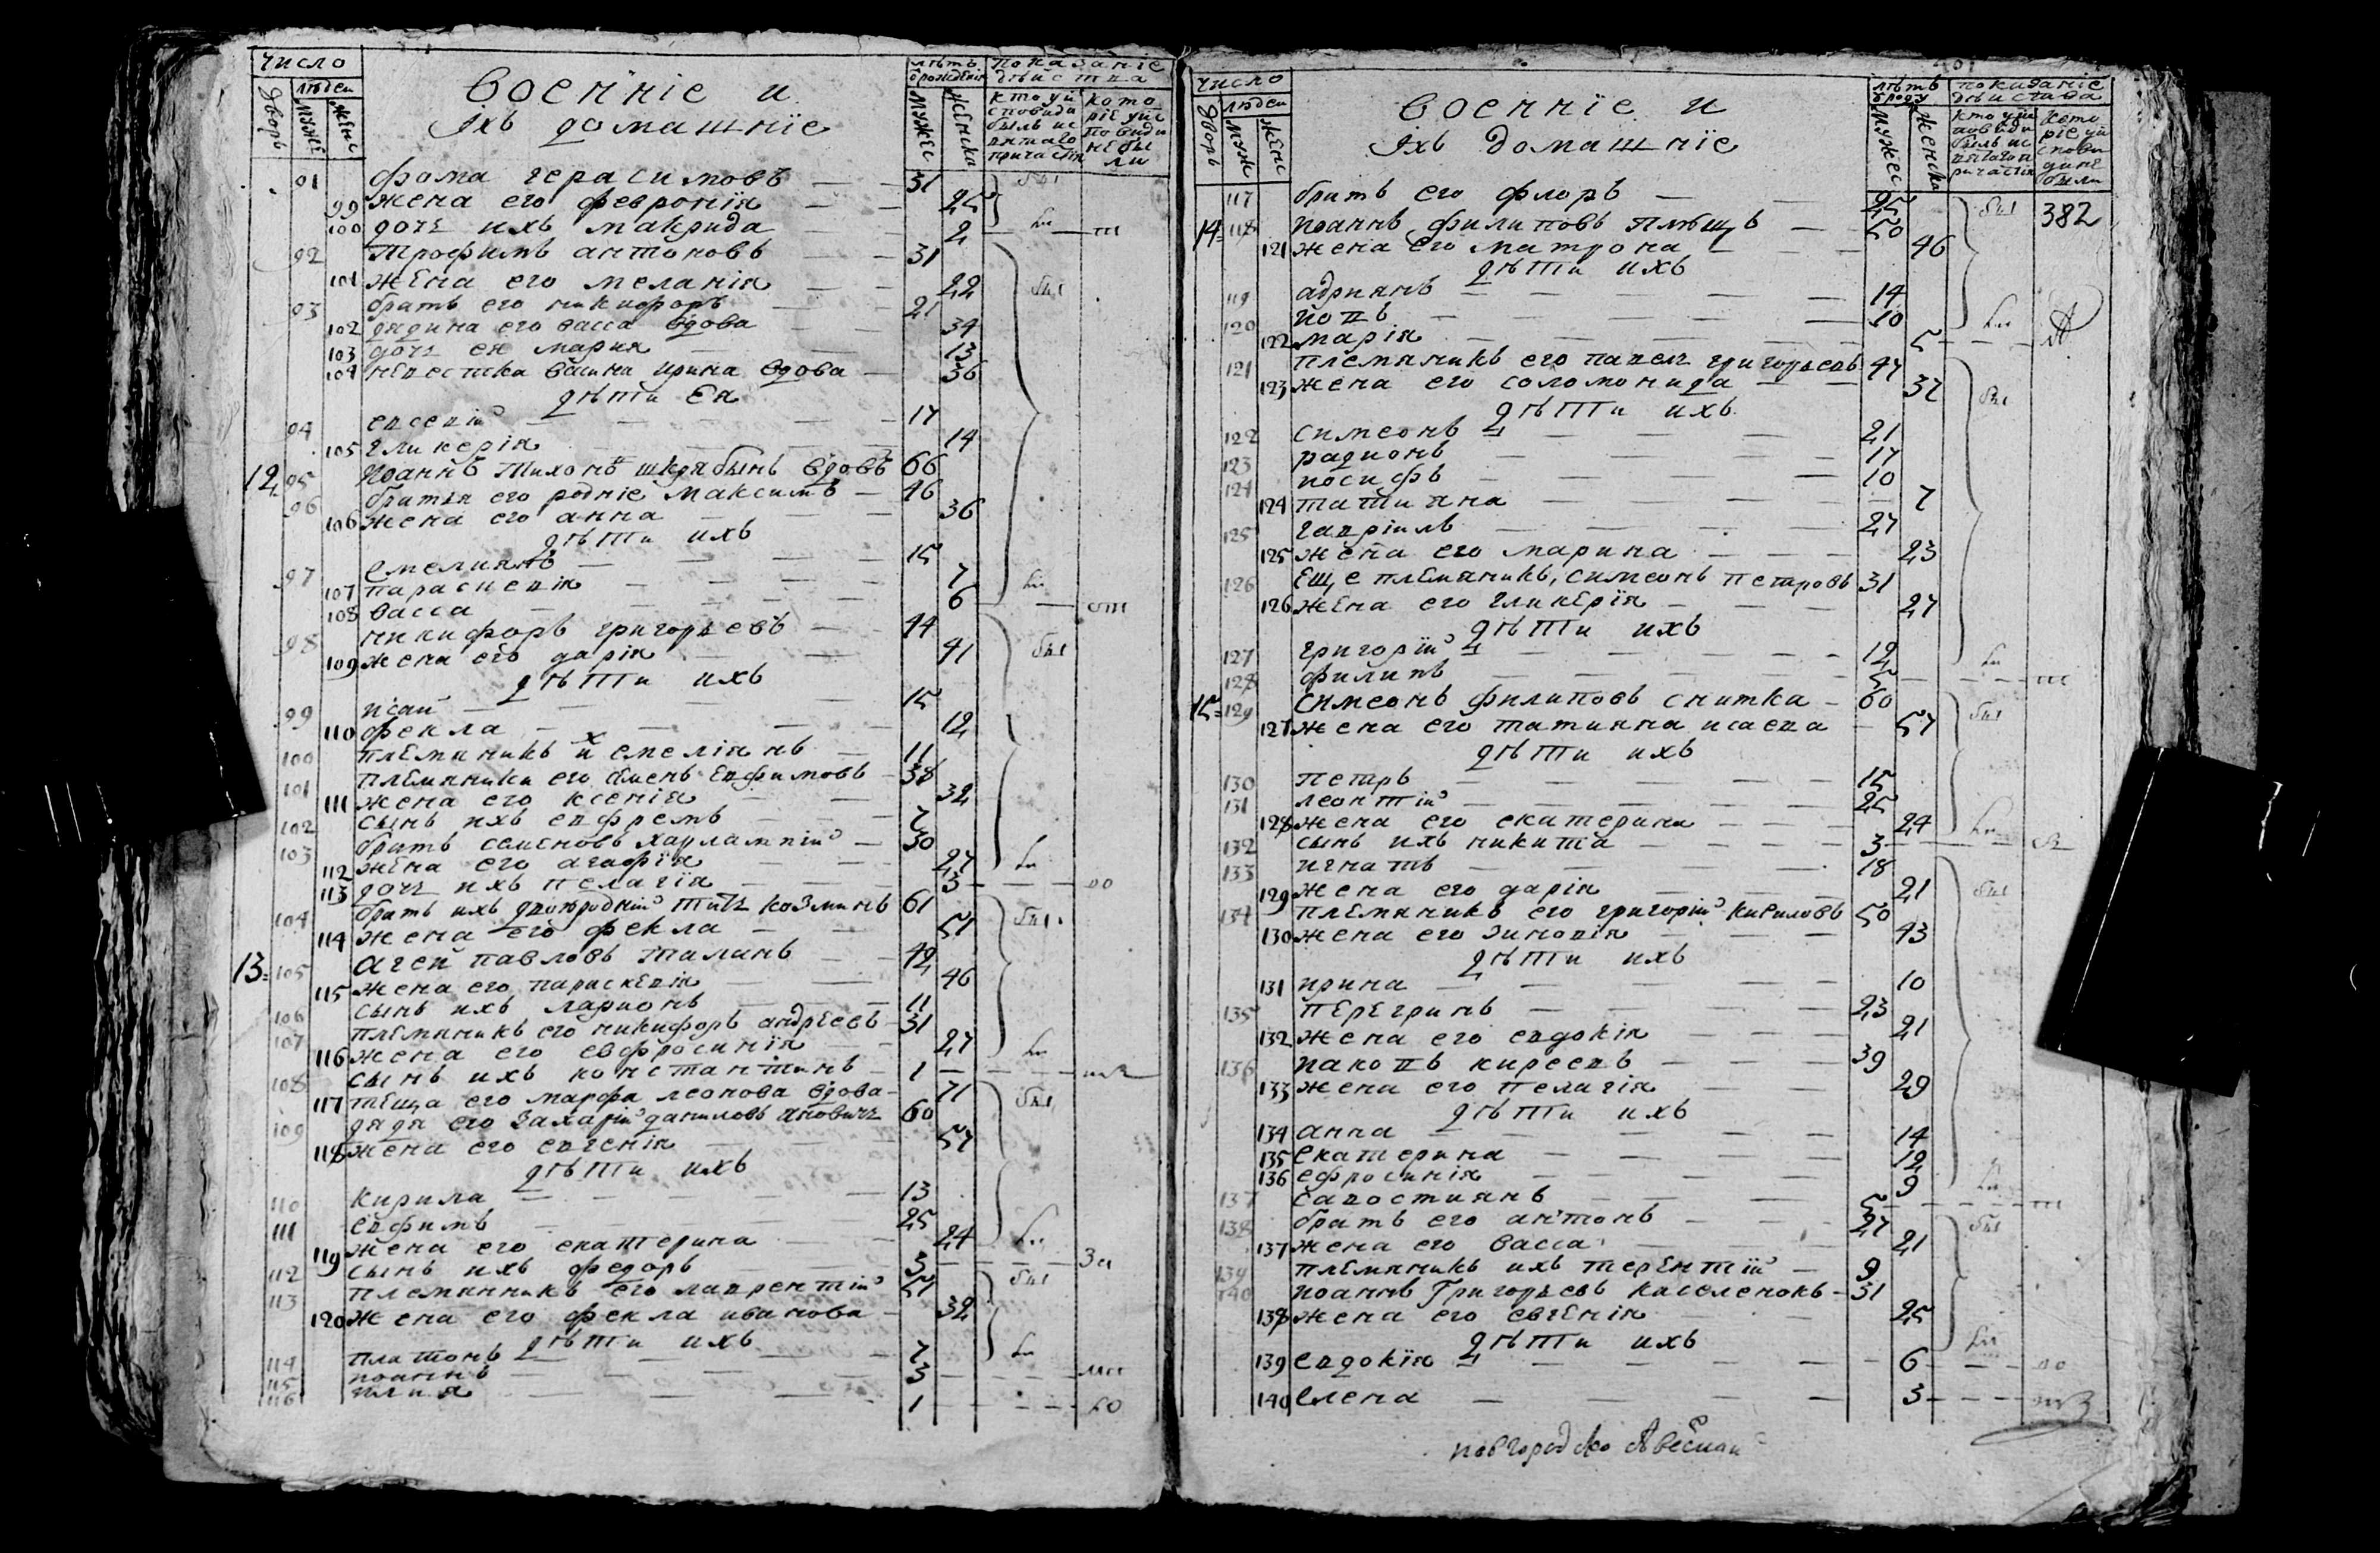 число
людеи
дворъ
мужс
женс
военніе и
Іхъ домашніе
лѣтъ
ѿ рожденія
мужес
женска
показаніе
дѣиства
кто уи
сповѣди
былъ и с
причаст
кото
ріе уис
повѣди
не бы
ли
91 фома герасимовъ 31
99 жена его февронія 25 был
100 дочь ихъ макрида 2
92 трофимъ антоновъ 31
101 жена его меланія 22 был
93 братъ его никифоръ 21
102 дядина его васса вдова 34
103 дочь ея мария 13
104 невестка ирина вдова 36
дѣти ея
94 евсевій 17
105 гликерія 14
12 95 иоаннъ тихонъ шкрябынъ вдовъ 66
96 братья его родніе максимъ 46
106 жена его анна 36
дѣти ихъ
97 емелиянъ 15
107 параскевія 7
108 васса 6
98 никифоръ григорьевъ 44
109 жена его дарія 41 был
дѣти ихъ
99 исаи 15
110 фекла 12
100 племяникъ их емеліянъ 11
101 племянники его семенъ евфимовъ 38
111 жена его ксенія 32
102 сынъ ихъ евфремъ 7
103 братъ семеновъ харлампій 30
112 жена его агафія 27
113 дочь ихъ пелагія 3
104 братъ ихъ двоюродній титъ козминъ 61
114 жена его фекла 51 был
13 105 агей павловъ талинъ 42
115 жена его параскевія 46
106 сынъ ихъ ларионъ 11
107 племяникъ его никифоръ андреевъ 31
116 жена его евфросинія 27
108 сынъ ихъ константинъ 1
117 теща его марфа леонова вдова 71 был
109 дядя его захарій даниловъ яновичъ 60
118 жена его евгенія 57
дѣти ихъ
110 кирила 13
111 евфимъ 25
119 жена его екатерина 24
112 сынъ ихъ федоръ 3
113 племянникъ его лаврентій 51 был
120 жена его фекла иванова 32
дѣти ихъ
114 платонъ 7
115 иоаннъ 3
116 илия 1
число
людеи
дворъ
мужс
женс
военніе и
Іхъ домашніе
лѣтъ
ѿ роду
мужес
женска
показаніе
дѣиства
117 братъ его флоръ 25
14 118 иоаннъ филиповъ плющъ 50 был 382
121 жена его матрона 46
дѣти ихъ
119 адриянъ 14
120 иовъ 10
122 марія 5
121 племяникъ его павелъ григорьевъ 47
123 жена его соломонида 37 был
дѣти ихъ
122 симеонъ 21
123 радионъ 17
124 иосифъ 10
124 татияна 7
125 гавріилъ 27
125 жена его марина 23
126 еще племяникъ, симеонъ петровъ 31
126 жена его гликерія 27
дѣти ихъ
127 григорій 12
128 филипъ 5
15 129 симеонъ филиповъ снитка 60
127 жена его татияна исаева 57 был
дѣти ихъ
130 петръ 15
131 леонтій 25
128 жена его екатерина 24
132 сынъ ихъ никита 3
133 игнатъ 18
129 жена его дарія 21 был
134 племяникъ его григорій кириловъ 50
130 жена его зиновія 43
дѣти ихъ
131 ирина 10
135 перегринъ 23
132 жена его евдокія 21
136 иаковъ киреевъ 39
133 жена его пелагія 29
дѣти ихъ
134 анна 14
135 екатерина 12
136 ефросинія 9
137 савостиянъ 5
138 братъ его антонъ 27 был
137 жена его васса 21
139 племяникъ ихъ терентій 9
140 иоаннъ Григорьевъ каселенокъ 31
138 жена его евгенія 25
дѣти ихъ
139 евдокія 6
140 елена 3